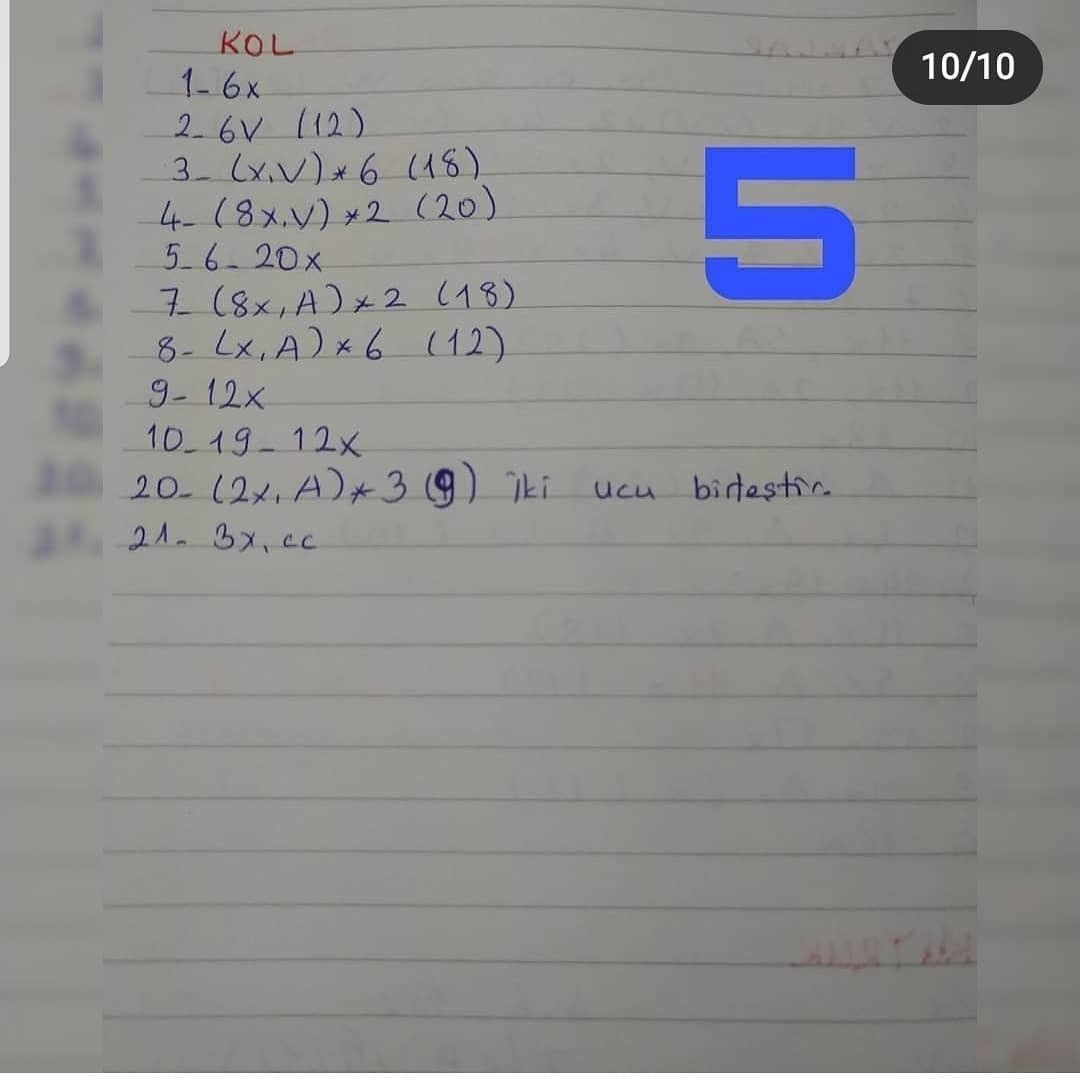 KOL
10/10
1- 6x
2- 6V (12)
3- (x,V)*6 (18)
5
4- (8x,V)*2 (20)
5-6- 20x
7- (8x,A)*2 (18)
8- (x,A)*6 (12)
9- 12x
10-19- 12x
20- (2x,A)*3 (9) İki ucu birleştir.
21- 3x, cc